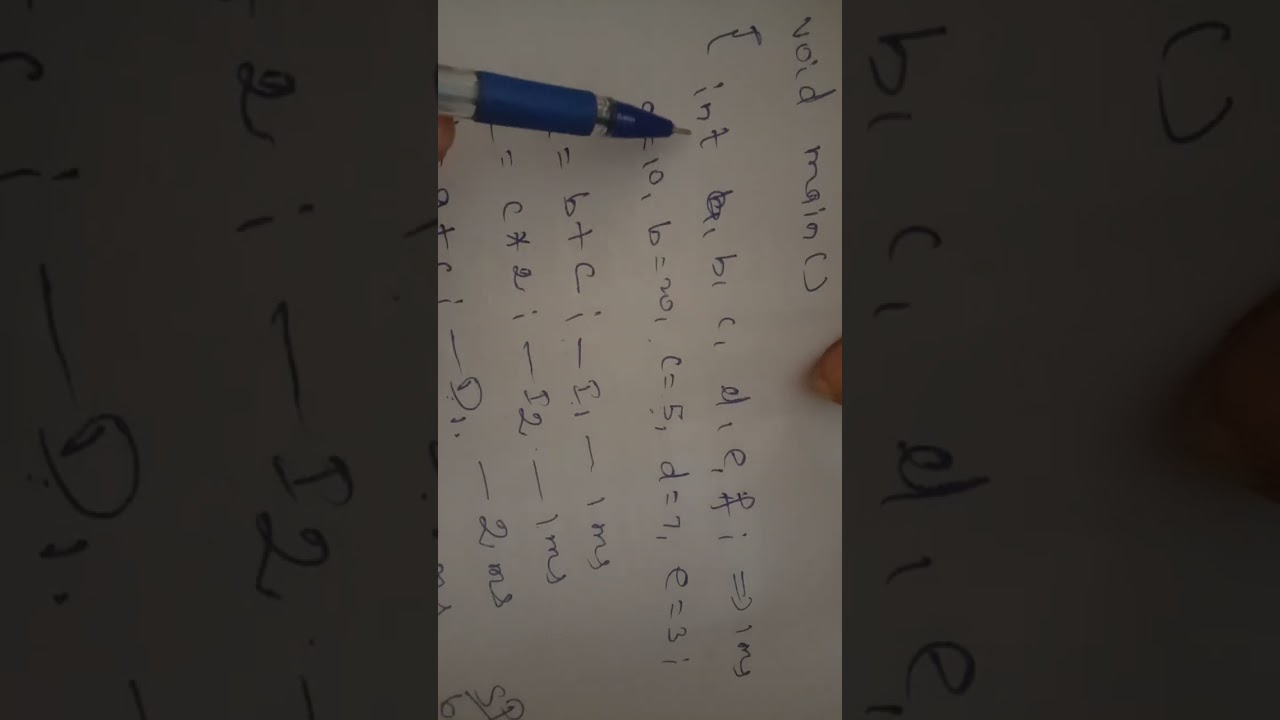 void main()
{ int a, b, c, d, e, f; => 1ms
=10, b=20, c=5, d=7, e=3;
= b+c; — I1 — 1ms
= c*2; — I2 — 1ms
a+c; — D1. — 2ms